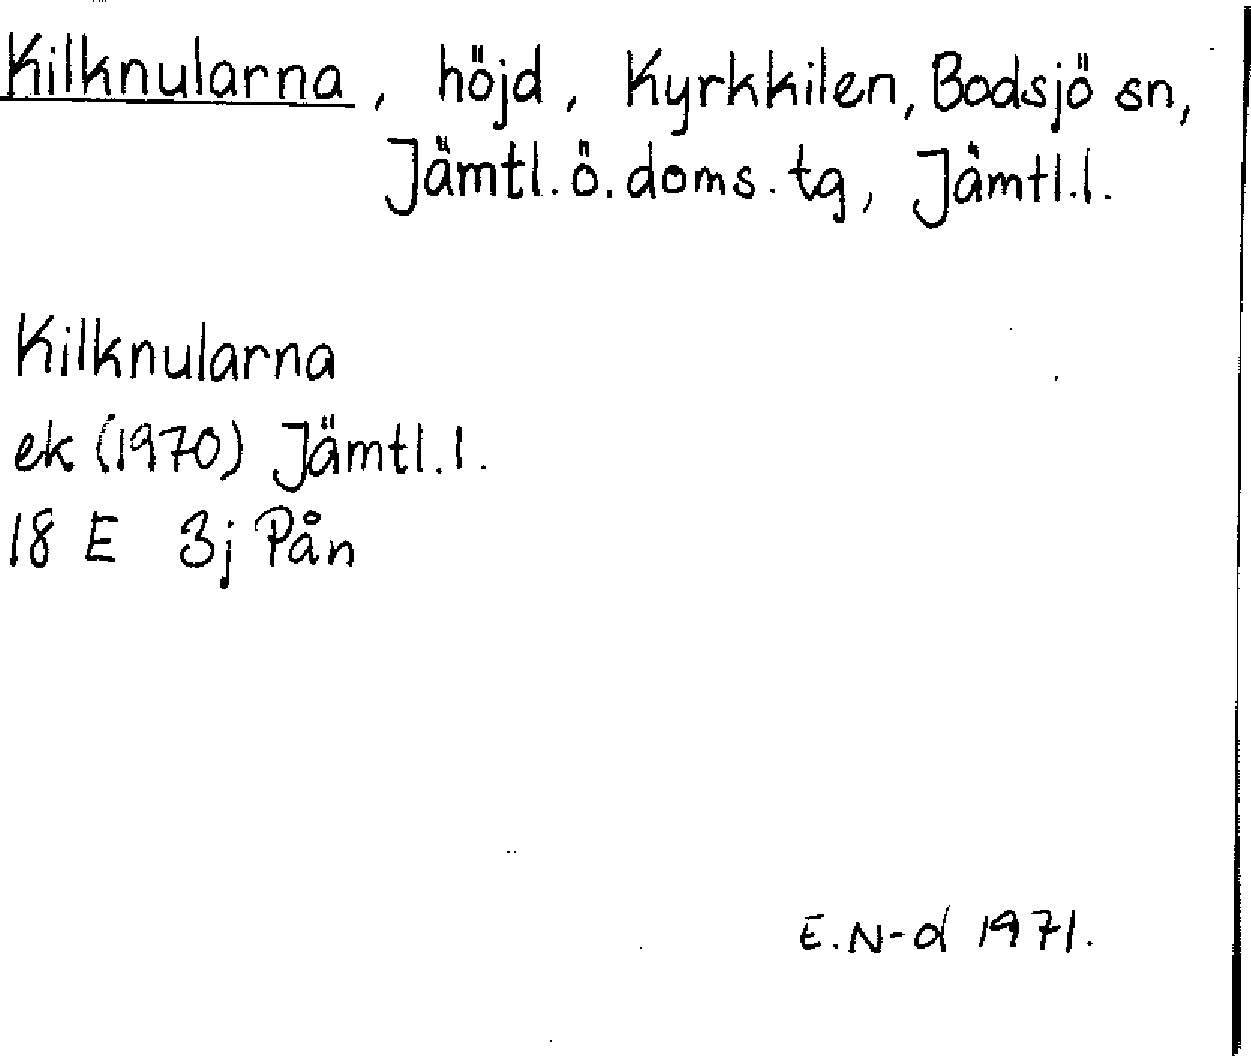 Kilknularna, höjd, Kyrkkilen, Bodsjö sn,
Jämtl. ö. doms. tg, Jämtl. l.
Kilknularna
ek (1970) Jämtl. l.
18 E 3j Pån
E. N-d 1971.